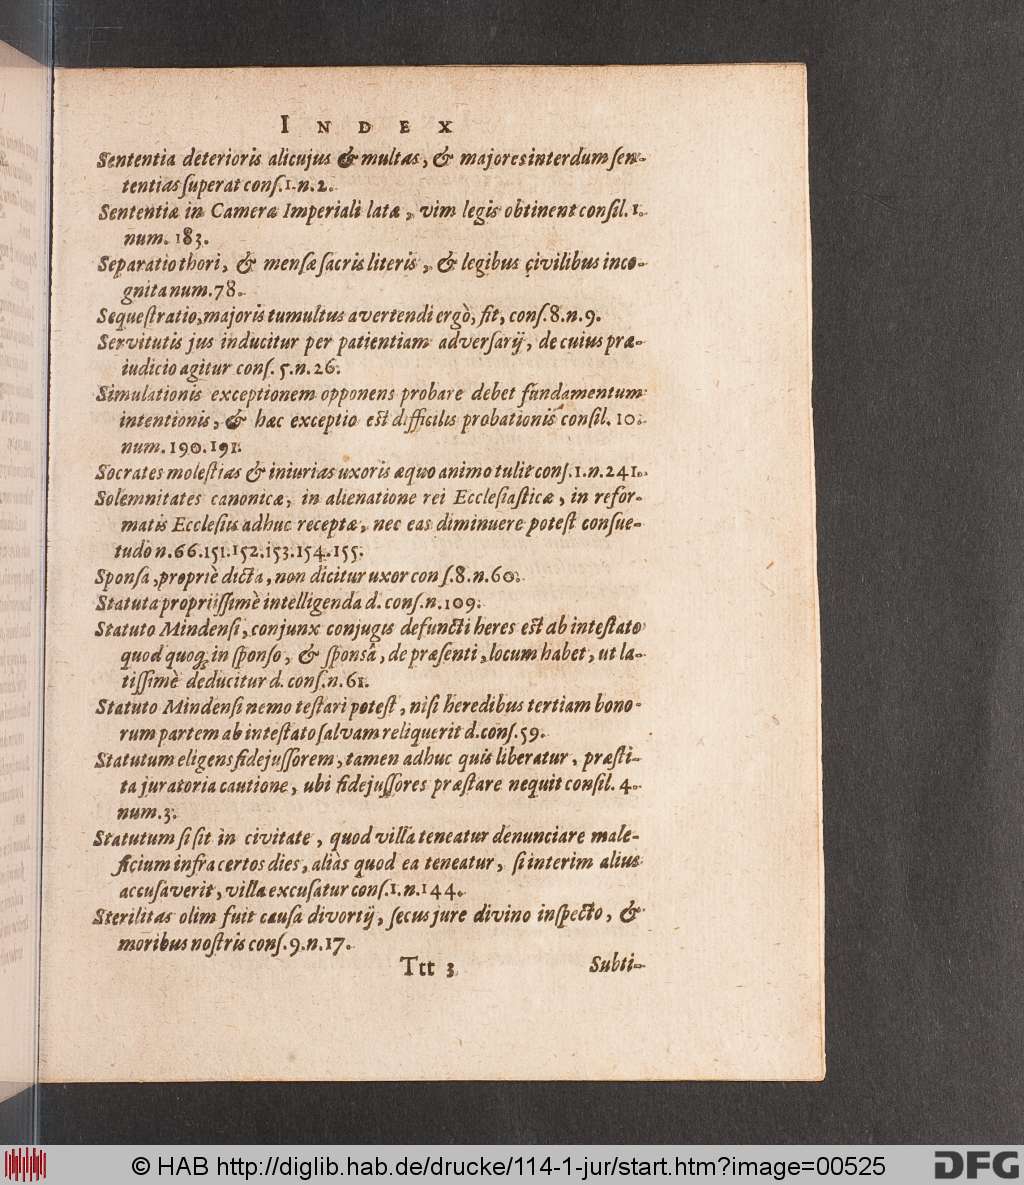 INDEX
Sententia deterioris alicujus & multas, & majores interdum sen-
tentias superat cons. 1. n. 2.
Sententiæ in Camera Imperiali latæ, vim legis obtinent consil. 1.
num. 183.
Separatio thori, & mensæ sacris literis, & legibus civilibus inco-
gnita num. 78.
Sequestratio, majoris tumultus avertendi ergò, fit, cons. 8. n. 9.
Servitutis jus inducitur per patientiam adversarij, de cuius præ-
iudicio agitur cons. 5. n. 26.
Simulationis exceptionem opponens probare debet fundamentum
intentionis, & hæc exceptio est difficilis probationis consil. 10.
num. 190. 191.
Socrates molestias & iniurias uxoris æquo animo tulit cons. 1. n. 241.
Solemnitates canonicæ, in alienatione rei Ecclesiasticæ, in refor-
matis Ecclesiis adhuc receptæ, nec eas diminuere potest consue-
tudo n. 66. 151. 152. 153. 154. 155.
Sponsa, propriè dicta, non dicitur uxor cons. 8. n. 60.
Statuta propriissimè intelligenda d. cons. n. 109.
Statuto Mindensi, conjunx conjugis defuncti heres est ab intestato
quod quoq; in sponso, & sponsâ, de præsenti, locum habet, ut la-
tissimè deducitur d. cons. n. 61.
Statuto Mindensi nemo testari potest, nisi heredibus tertiam bono-
rum partem ab intestato salvam reliquerit d. cons. 59.
Statutum eligens fidejussorem, tamen adhuc quis liberatur, præsti-
ta juratoria cautione, ubi fidejussores præstare nequit consil. 4.
num. 3.
Statutum si sit in civitate, quod villa teneatur denunciare male-
ficium infra certos dies, aliàs quod ea teneatur, si interim alius
accusaverit, villa excusatur cons. 1. n. 144.
Sterilitas olim fuit causa divortij, secus jure divino inspecto, &
moribus nostris cons. 9. n. 17.
Ttt 3 Subti-
© HAB http://diglib.hab.de/drucke/114-1-jur/start.htm?image=00525 DFG